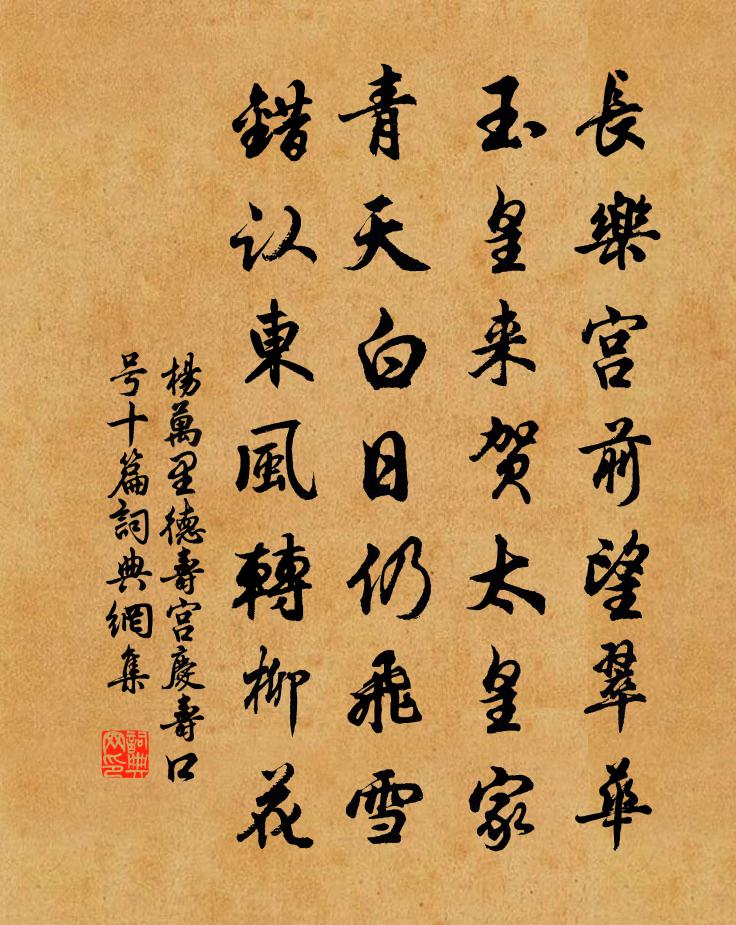 長樂宮前望翠華
玉皇来賀太皇家
青天白日仍飛雪
錯认東風轉柳花
楊萬里德壽宮慶壽口
号十篇詞典網集
詞典網印